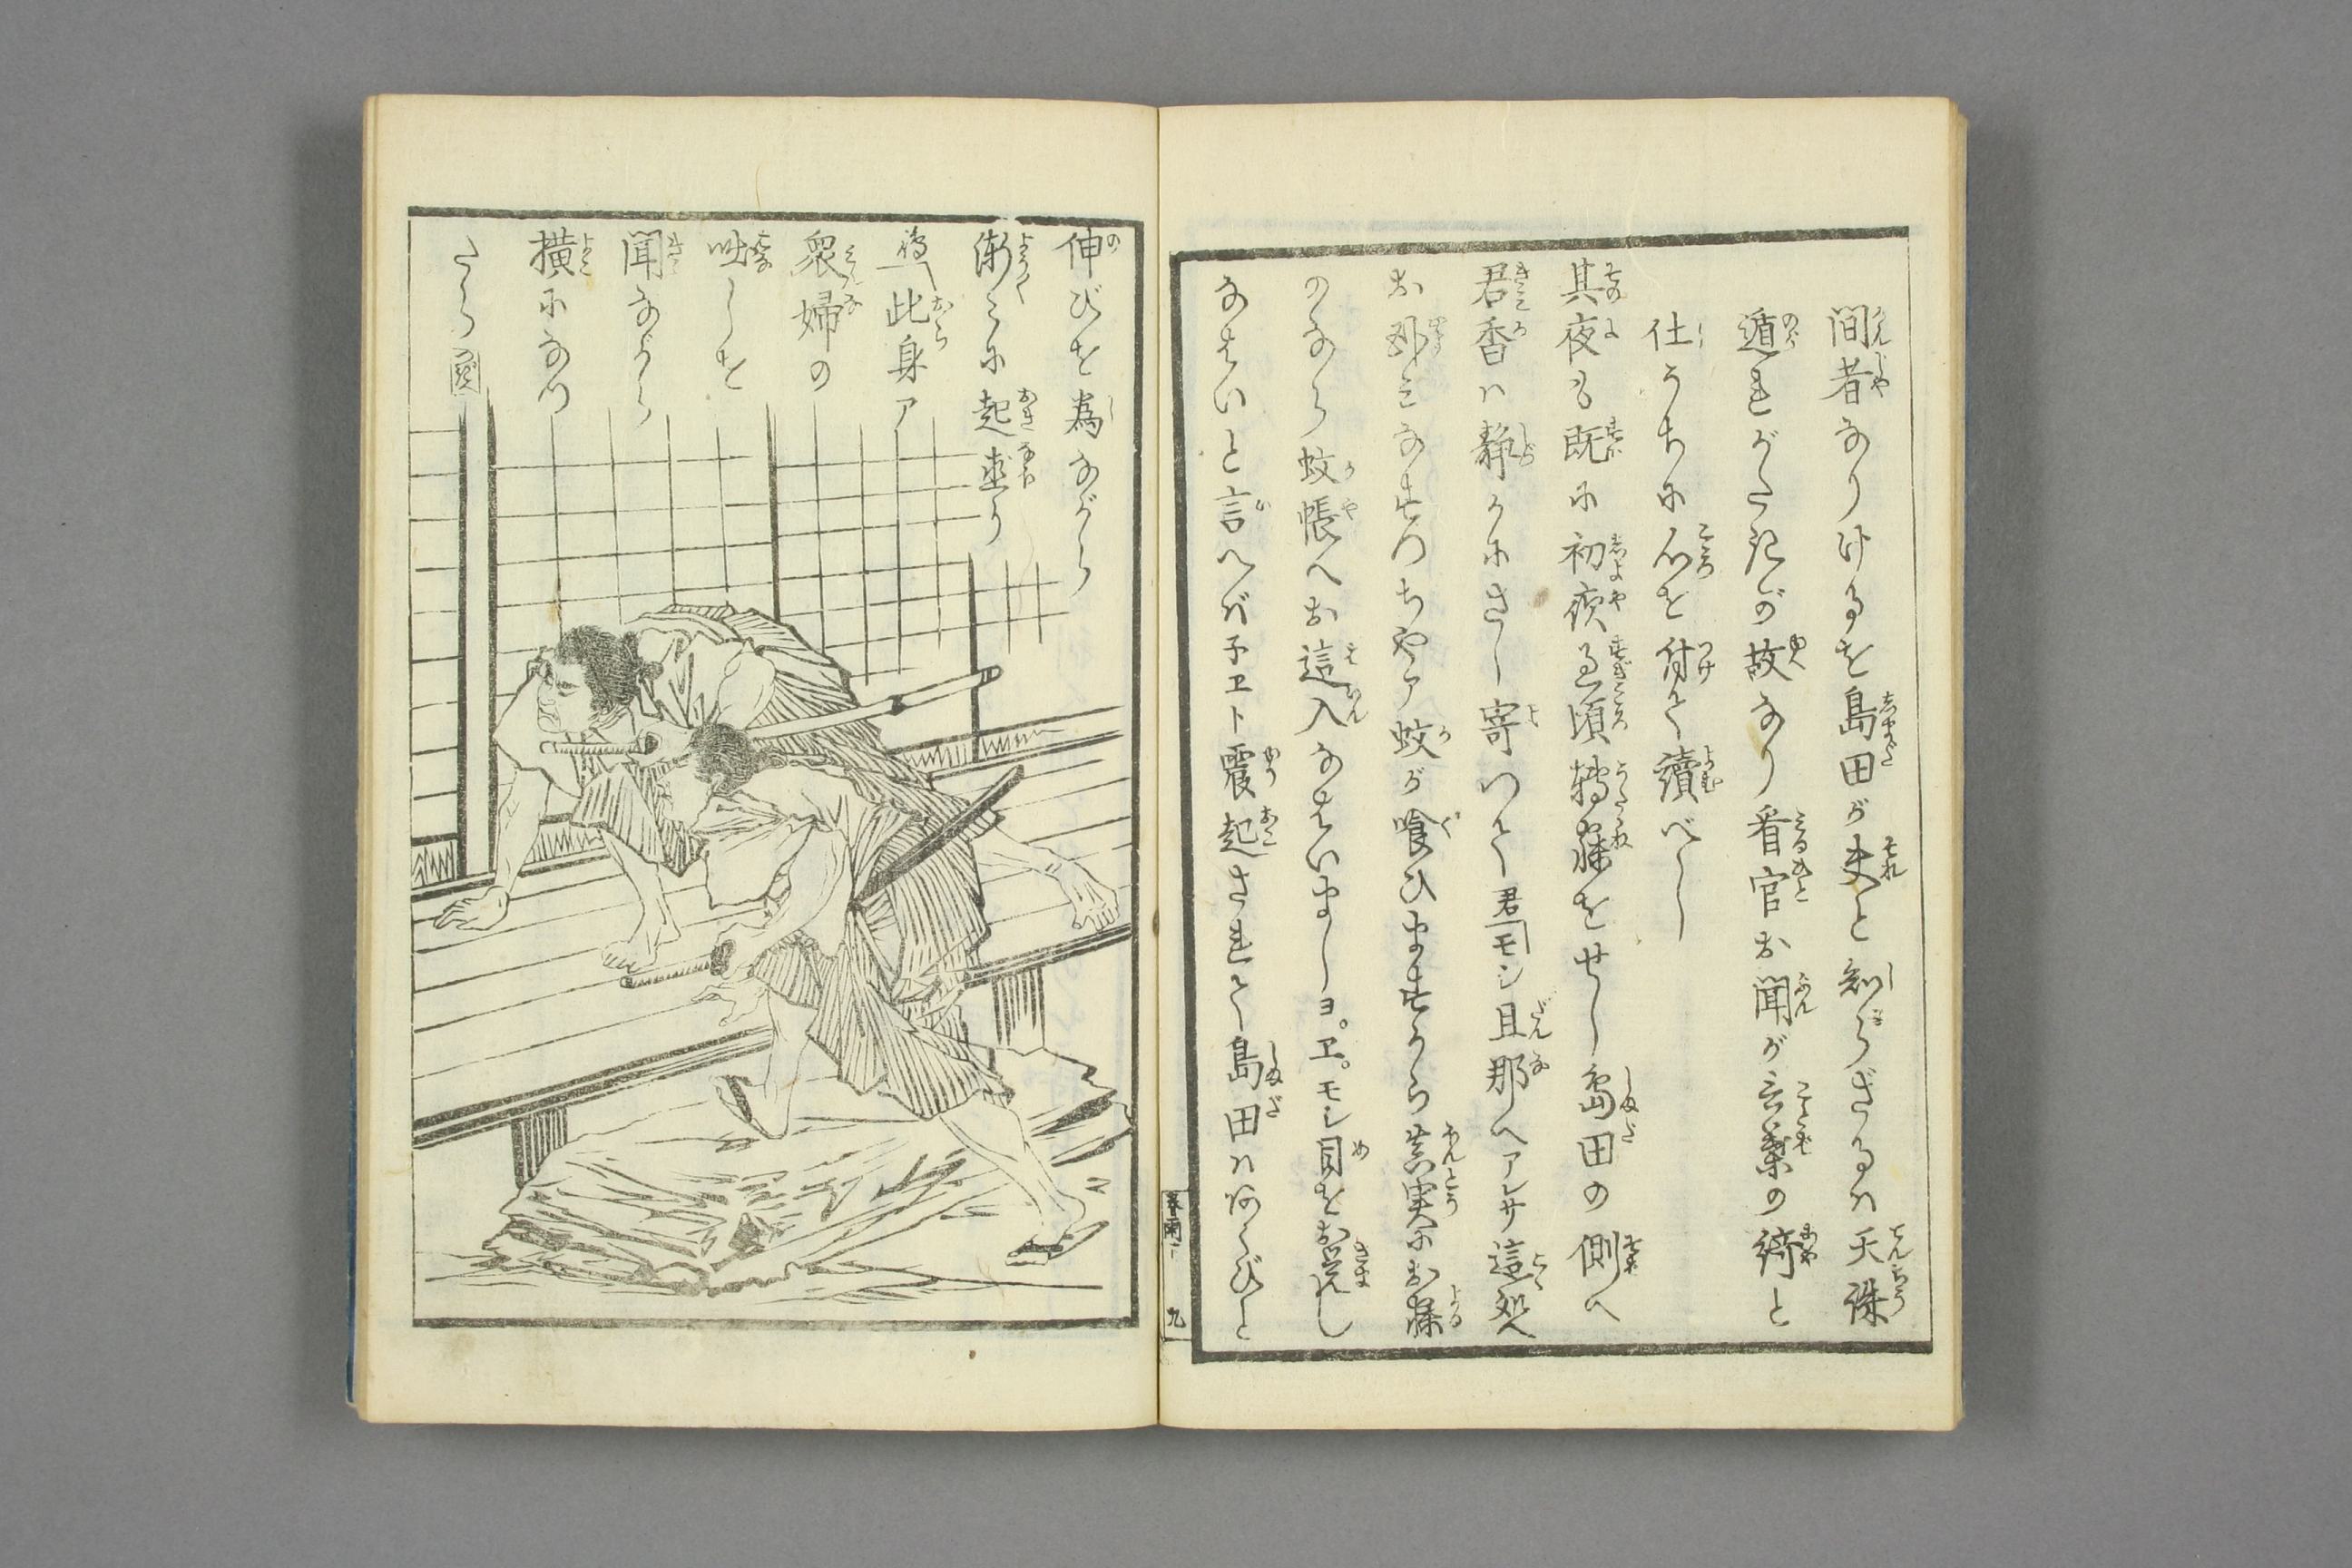 間者なりけるを島田が夫と知らざるハ天誅
遁れがたきが故なり看官お聞が言葉の綺と
仕うちに心を付て讀べし
其夜も既に初夜過頃轉寐をせし島田の側へ
君香ハ静かにさし寄つて君「モシ旦那へアレサ這処へ
お臥みなすつちやア蚊が喰ひますから真実にお寐
のなら蚊帳へお這入なさいましヨ。ヱ。モシ目をお覚し
なさいと言へバ子ヱト震起されて島田ハあくびと
伸びを為ながら
漸々に起直り
島「此身ア
衆婦の
咄しを
聞ながら
横になつ
たら
春雨二 九